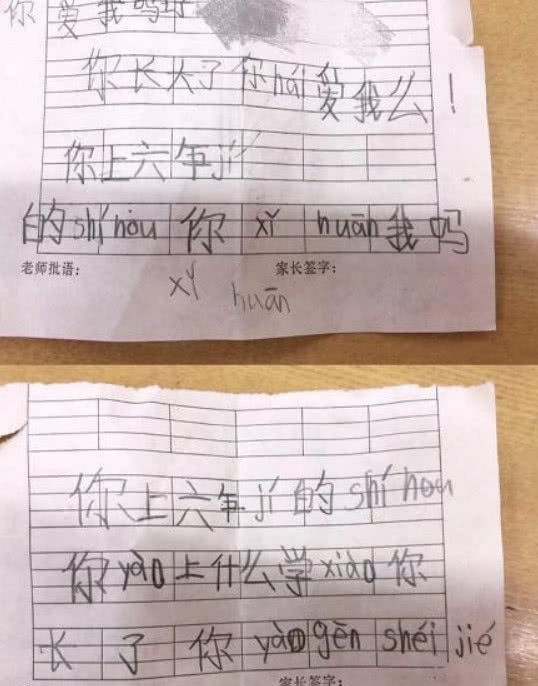 你爱我吗
你长大了你hái爱我么！
你上六年jí
的shí hou你xǐ huān我吗
老师批语： 家长签字：
xǐ huān
你上六年jí的shí hou
你yào上什么学xiào你
长了你yào gēn shéi jié
家长签字：